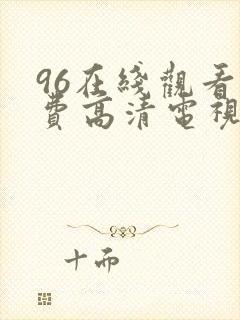 96在綫觀看
費高清電視
十而